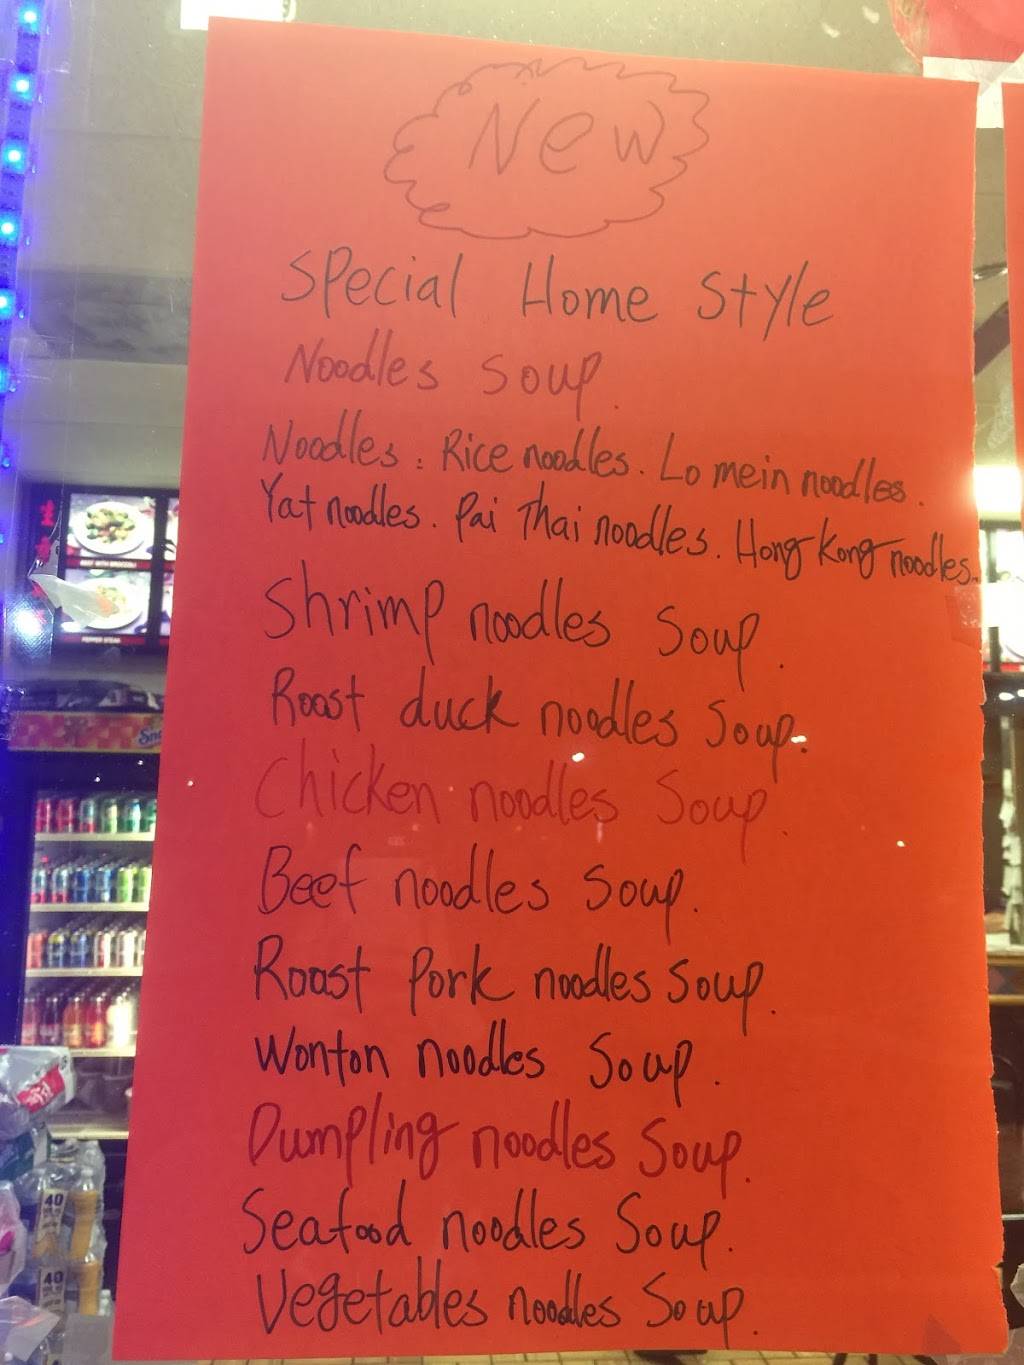 New
Special Home Style
Noodles Soup.
Noodles: Rice noodles. Lo mein noodles.
Yat noodles. Pai Thai noodles. Hong Kong noodles.
Shrimp noodles Soup.
Roast duck noodles Soup.
Chicken noodles Soup.
Beef noodles Soup.
Roast Pork noodles Soup.
Wonton noodles Soup.
Dumpling noodles Soup.
Seafood noodles Soup.
Vegetables noodles Soup.
BEEF WITH BROCCOLI
PEPPER STEAK
40
40